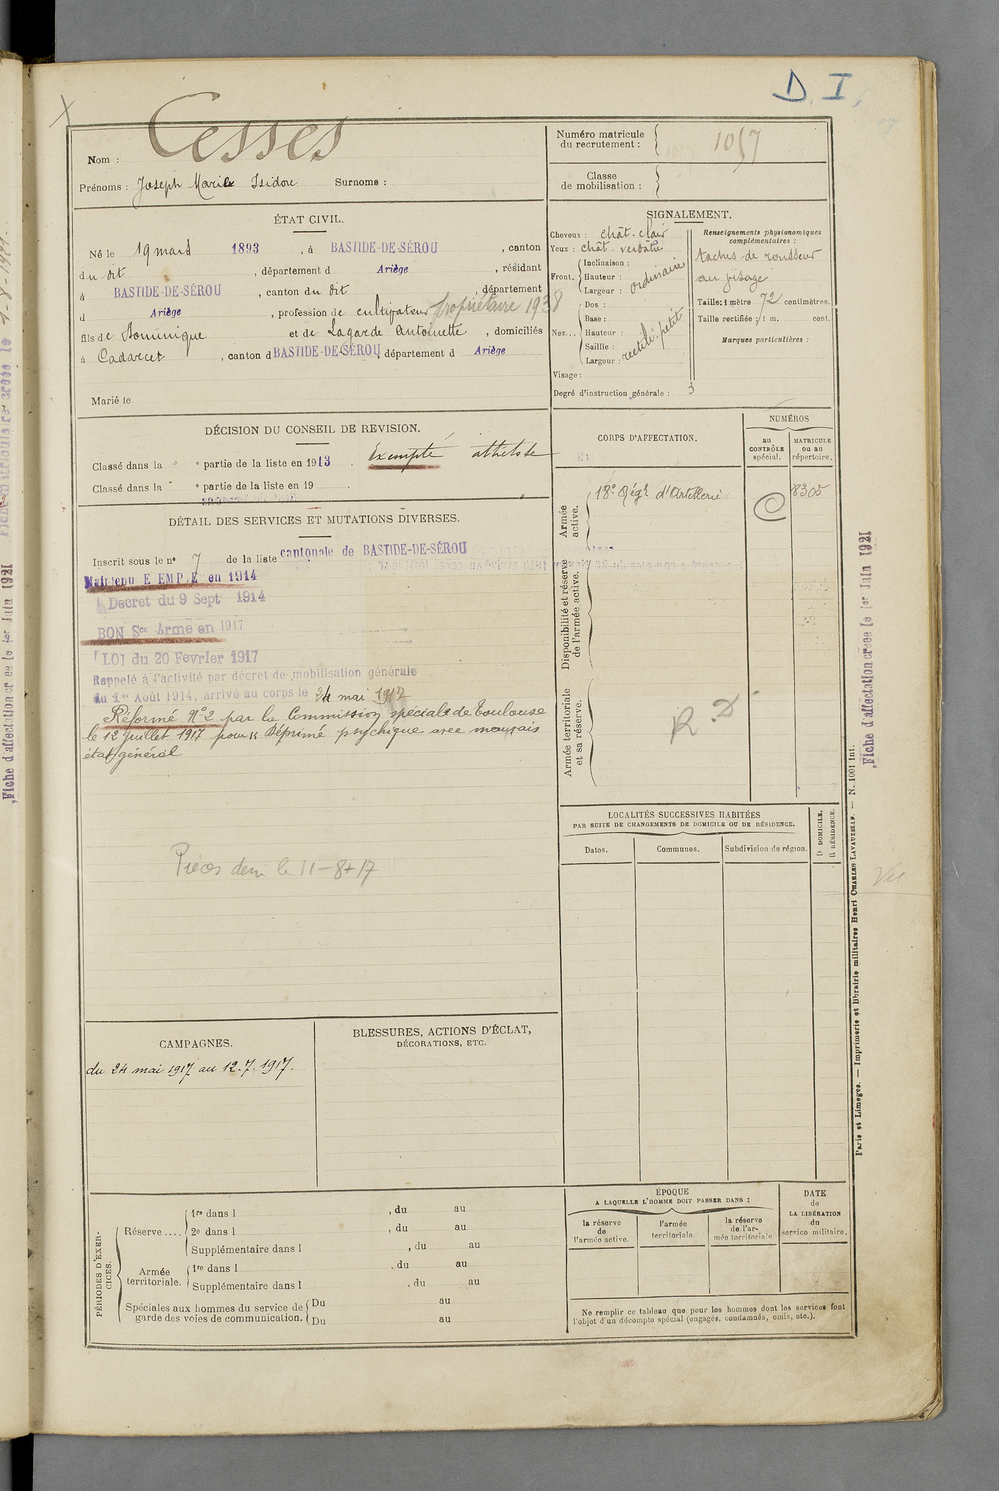 D. I.
Cesses
Nom :
Prénoms : Joseph Marie Isidore Surnoms :
Numéro matricule du recrutement : 1057
Classe de mobilisation :
ÉTAT CIVIL.
Né le 19 mars 1893, à BASTIDE-DE-SÉROU, canton
du dit, département d Ariège, résidant
à BASTIDE-DE-SÉROU, canton du dit, département
d Ariège, profession de cultivateur propriétaire 1938
fils de Dominique et de Lagarde Antoinette, domiciliés
à Cadarcet, canton d BASTIDE-DE-SÉROU département d Ariège
Marié le
SIGNALEMENT.
Cheveux : chât-clair
Yeux : chât. verdâtre
Front. Inclinaison :
Hauteur : ordinaire
Largeur :
Nez... Dos :
Base :
Hauteur : rectili. petit
Saillie :
Largeur :
Visage :
Degré d'instruction générale : 3
Renseignements physionomiques complémentaires :
taches de rousseur
au visage
Taille : 1 mètre 72 centimètres.
Taille rectifiée : 1 m. cent.
Marques particulières :
DÉCISION DU CONSEIL DE REVISION.
Classé dans la " " partie de la liste en 1913. Exempté athétose
Classé dans la " " partie de la liste en 19
DÉTAIL DES SERVICES ET MUTATIONS DIVERSES.
Inscrit sous le n° 7 de la liste cantonale de BASTIDE-DE-SÉROU
Maintenu E EMP E en 1914
Decret du 9 Sept 1914
BON Sce Armé en 1917
LOI du 20 Fevrier 1917
Rappelé à l'activité par décret de mobilisation générale
du 1er Août 1914, arrivé au corps le 24 mai 1917
Réformé N°2 par la Commission spéciale de Toulouse
le 12 juillet 1917 pour " Déprimé psychique avec mauvais
état général
Pièces dem le 11-8-17
CORPS D'AFFECTATION.
NUMÉROS
AU CONTRÔLE spécial.
MATRICULE OU AU répertoire.
Armée active.
18e Régt d'Artillerie 8305
Disponibilité et réserve de l'armée active.
Armée territoriale et sa réserve.
R. D
LOCALITÉS SUCCESSIVES HABITÉES
PAR SUITE DE CHANGEMENTS DE DOMICILE OU DE RÉSIDENCE.
Dates. Communes. Subdivision de région. D DOMICILE. R RÉSIDENCE.
CAMPAGNES.
du 24 mai 1917 au 12.7.1917.
BLESSURES, ACTIONS D'ÉCLAT,
DÉCORATIONS, ETC.
PÉRIODES D'EXERCICES.
Réserve.... 1re dans l , du au
2e dans l , du au
Supplémentaire dans l , du au
Armée territoriale. 1re dans l , du au
Supplémentaire dans l , du au
Spéciales aux hommes du service de garde des voies de communication. Du au
Du au
ÉPOQUE
A LAQUELLE L'HOMME DOIT PASSER DANS :
la réserve de l'armée active.
l'armée territoriale.
la réserve de l'armée territoriale
DATE DE LA LIBÉRATION du service militaire.
Ne remplir ce tableau que pour les hommes dont les services font
l'objet d'un décompte spécial (engagés, condamnés, omis, etc.).
Paris et Limoges. — Imprimerie et librairie militaires Henri CHARLES-LAVAUZELLE. — N. 1001 int.
Fiche d'affectation créée le 1er Juin 1921
Vu
Fiche d'affectation créée le 1er Juin 1921